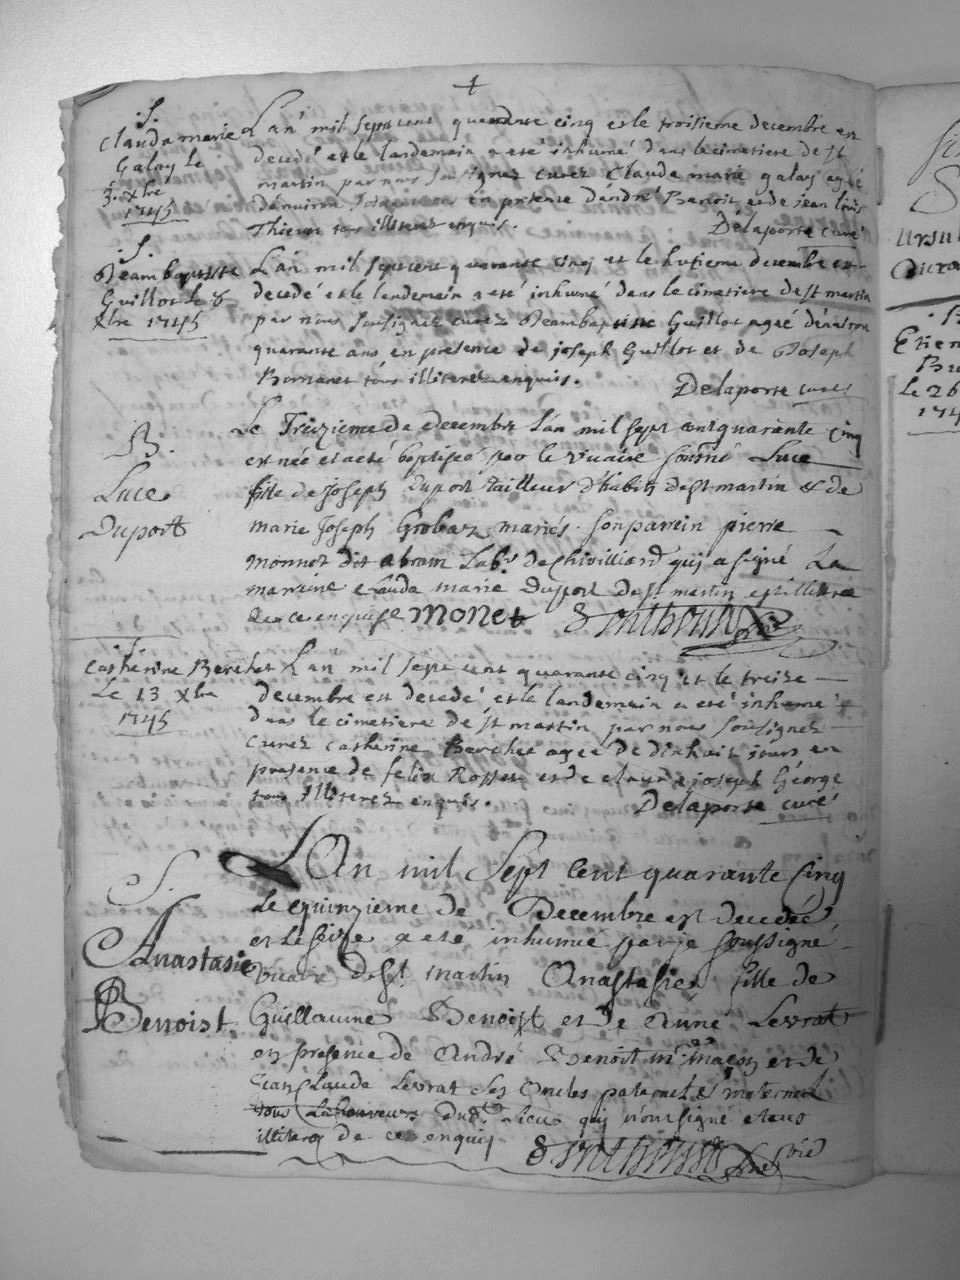 S.
Clauda marie
Galay Le
3. Xbre
1745
L'an mil sept cent quarante cinq et le troisieme decembre est
decedé et le landemain a eté inhumé dans le cimetiere de st
martin par nous soussignez curez Claude marie galay agé
d'environ en presence d'andré Benoit et de jean louis
Thievon tous illiterez enquis.
Delaporte curé
S.
Jeambaptiste
Guillot le 8
Xbre 1745
L'an mil sept cent quarante cinq et le hutieme decembre est
decedé et le landemain a eté inhumé dans le cimetiere de st martin
par nous soussignez curez Jeambaptiste Guillot agé d'environ
quarante ans en presence de joseph Guillot et de Joseph
tous illiterez enquis.
Delaporte curé
B.
Luce
Duport
Le Treizieme de decembre l'an mil sept cent quarante cinq
est née et a eté baptisée par le vicaire soussigné Luce
fille de Joseph Duport tailleur d'habits de st martin & de
marie Joseph Grobaz mariés. son parrein pierre
monnet dit abram Labr. de Chivilliard qui a signé La
marreine Clauda marie Duport de st martin est illitere
de ce enquise MONET
Catherine Berchet
Le 13 Xbre
1745
L'an mil sept cent quarante cinq et le treize
decembre est decedé et le landemain a eté inhumé
dans le cimetiere de st martin par nous soussignez
curez Catherine Berchet agee de dixhuit jours en
presence de felix Rosset et de claude joseph George
tous illiterez enquis.
Delaporte curé
S.
Anastasie
Benoist
L'An mil Sept Cent quarante Cinq
Le quinzieme de Decembre est decedée
et Le seize a eté inhumée par je soussigné
vicaire de st. martin Anastasie fille de
Guillaume Benoist et de Anne Levrat
en presence de André Benoit me. maçon et de
Jean Claude Levrat ses oncles paternel & maternel
tous Laboureurs dud. Lieu qui n'ont signé etans
illiterez de ce enquis